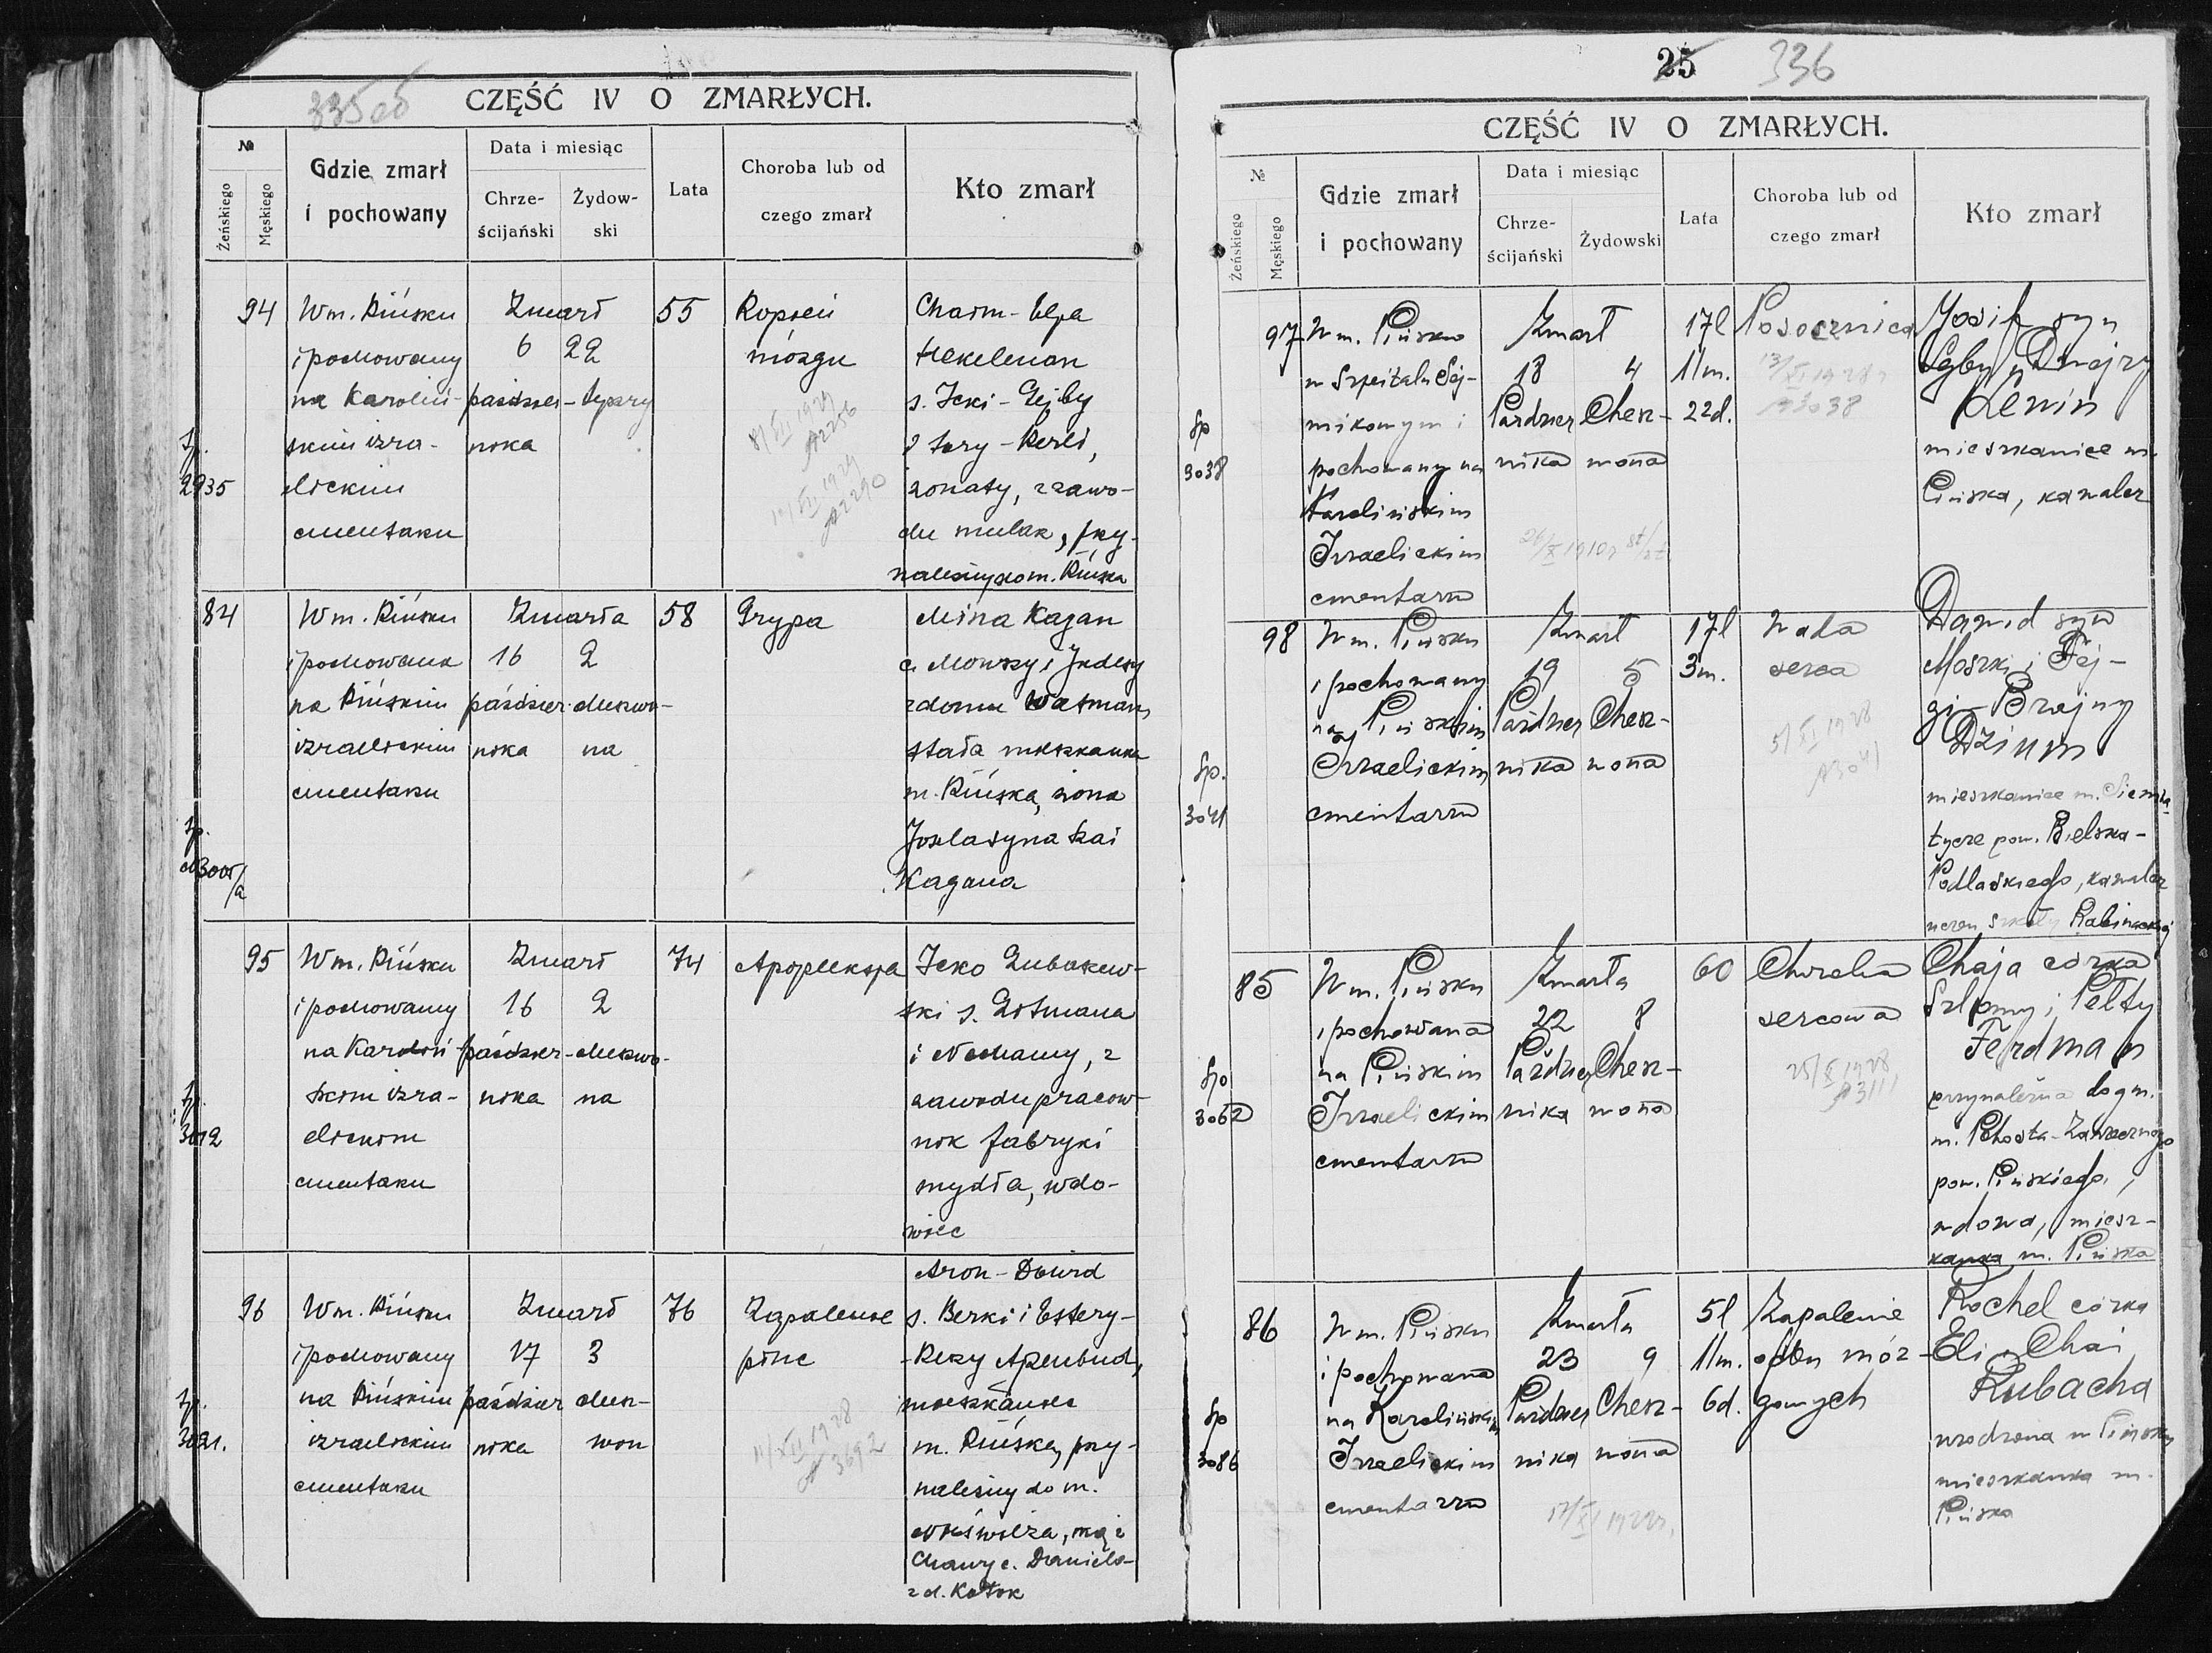 335 об
CZĘŚĆ IV O ZMARŁYCH.
№
Żeńskiego
Męskiego
Gdzie zmarł
i pochowany
Data i miesiąc
Chrze-
ścijański
Żydow-
ski
Lata
Choroba lub od
czego zmarł
Kto zmarł
94
W m. Pińsku
i pochowany
na Karoliń-
skim izra-
elickim
cmentarzu
Zmarł
6 22
paździer- tyszry
nika
55
Ropień
mózgu
Chaim-
Hekelman
s. Icki - Lejby
i Sory - Perli,
żonaty, z zawo-
du mularz, przy-
należny do m. Pińska
2935
84
W m. Pińsku
i pochowana
na Pińskim
izraelickim
cmentarzu
Zmarła
16 2
paździer- Meszwo-
nika na
58
Grypa
Mina Kagan
c. Mowszy i Judesy
z domu Watman,
stała mieszkanka
m. Pińska, żona
Josela syna Szai
Kagana
3005/a
95
W m. Pińsku
i pochowany
na Karoliń-
skim izra-
elickim
cmentarzu
Zmarł
16 2
paździer- Meszwo-
nika na
74
Apopleksja
Icko Lubaszew-
ski s. Zusmana
i Nechamy, z
zawodu pracow-
nik fabryki
mydła, wdo-
wiec
3012
96
W m. Pińsku
i pochowany
na Pińskim
izraelickim
cmentarzu
Zmarł
17 3
paździer Mesz-
nika won
76
Zapalenie
płuc
11/XII 1928
№ 3692
Aron - Dawid
s. Berki i Estery-
-Rezy Ajzenbud,
mieszkaniec
m. Pińska, przy-
należny do m.
Nieświeża, mąż
Chawy c. Daniela
z d. Kotok
3021.
25 336
CZĘŚĆ IV O ZMARŁYCH.
№
Żeńskiego
Męskiego
Gdzie zmarł
i pochowany
Data i miesiąc
Chrze-
ścijański
Żydowski
Lata
Choroba lub od
czego zmarł
Kto zmarł
97
W m. Pińsku
w Szpitalu Sej-
mikowym i
pochowany na
Karolińskim
Izraelickim
cmentarzu
Zmarł
18 4
Paździer Chesz-
nika wona
17l
11m.
22d.
Posocznica
13/XI 1928 r
№ 3038
Josif syn
Lejby i Dwejzy
Lenin
mieszkaniec m.
Pińska, kawaler
Sp
3038
98
W m. Pińsku
i pochowany
na Pińskim
Izraelickim
cmentarzu
Zmarł
19 5
Paździer Chesz-
nika wona
17l
3m.
Wada
serca
5/XI 1928
№ 3041
Dawid syn
Moszki i Fej-
gi-Brajny
Dzinm
mieszkaniec m. Siemia-
tycze pow. Bielska-
Podlaskiego, kawaler
uczeń szkoły Rabinackiej
Sp.
3041
85
W m. Pińsku
i pochowana
na Pińskim
Izraelickim
cmentarzu
Zmarła
22 8
Paździer Chesz-
nika wona
60
Choroba
sercowa
25/X 1928
№ 3111
Chaja córka
Szlomy i Pełty
Ferdman
przynależna do gm.
m. Pohosta-Zarzecznego
pow. Pińskiego,
wdowa, miesz-
kanka m. Pińska
Sp
3062
86
W m. Pińsku
i pochowana
na Karolińskim
Izraelickim
cmentarzu
Zmarła
23 9
Paździer Chesz-
nika wona
5l
11m.
6d.
Zapalenie
opon móz-
gowych
Rochel córka
Eli i Chai
Rubacha
urodzona w Pińsku
mieszkanka m.
Pińska
Sp
3086